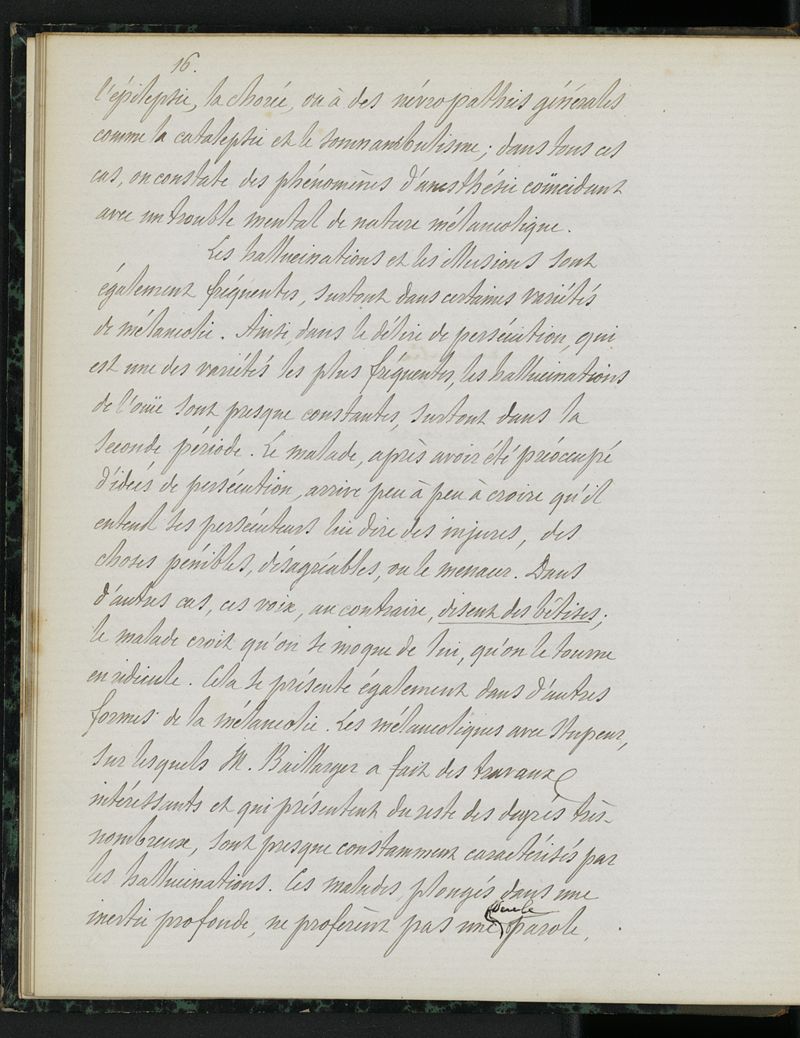 16.
l'épilepsie, la chorée, ou à des névropathies générales
comme la catalepsie et le somnambulisme; dans tous ces
cas, on constate des phénomènes d'anesthésie coïncidant
avec un trouble mental de nature mélancolique.
Les hallucinations et les illusions sont
également fréquentes, surtout dans certaines variétés
de mélancolie. Ainsi, dans le délire de persécution, qui
est une des variétés les plus fréquentes, les hallucinations
de l'ouïe sont presque constantes, surtout dans la
seconde période. Le malade, après avoir été préoccupé
d'idées de persécution, arrive peu à peu à croire qu'il
entend ses persécuteurs lui dire des injures, des
choses pénibles, désagréables, ou le menacer. Dans
d'autres cas, ces voix, au contraire, disent des bêtises;
le malade croit qu'on se moque de lui, qu'on le tourne
en ridicule. Cela se présente également dans d'autres
formes de la mélancolie. Les mélancoliques avec stupeur,
sur lesquels M. Baillarger a fait des travaux
intéressants et qui présentent du reste des degrés très-
nombreux, sont presque constamment caractérisés par
les hallucinations. Ces malades, plongés dans une
inertie profonde, ne profèrent pas une seule parole,